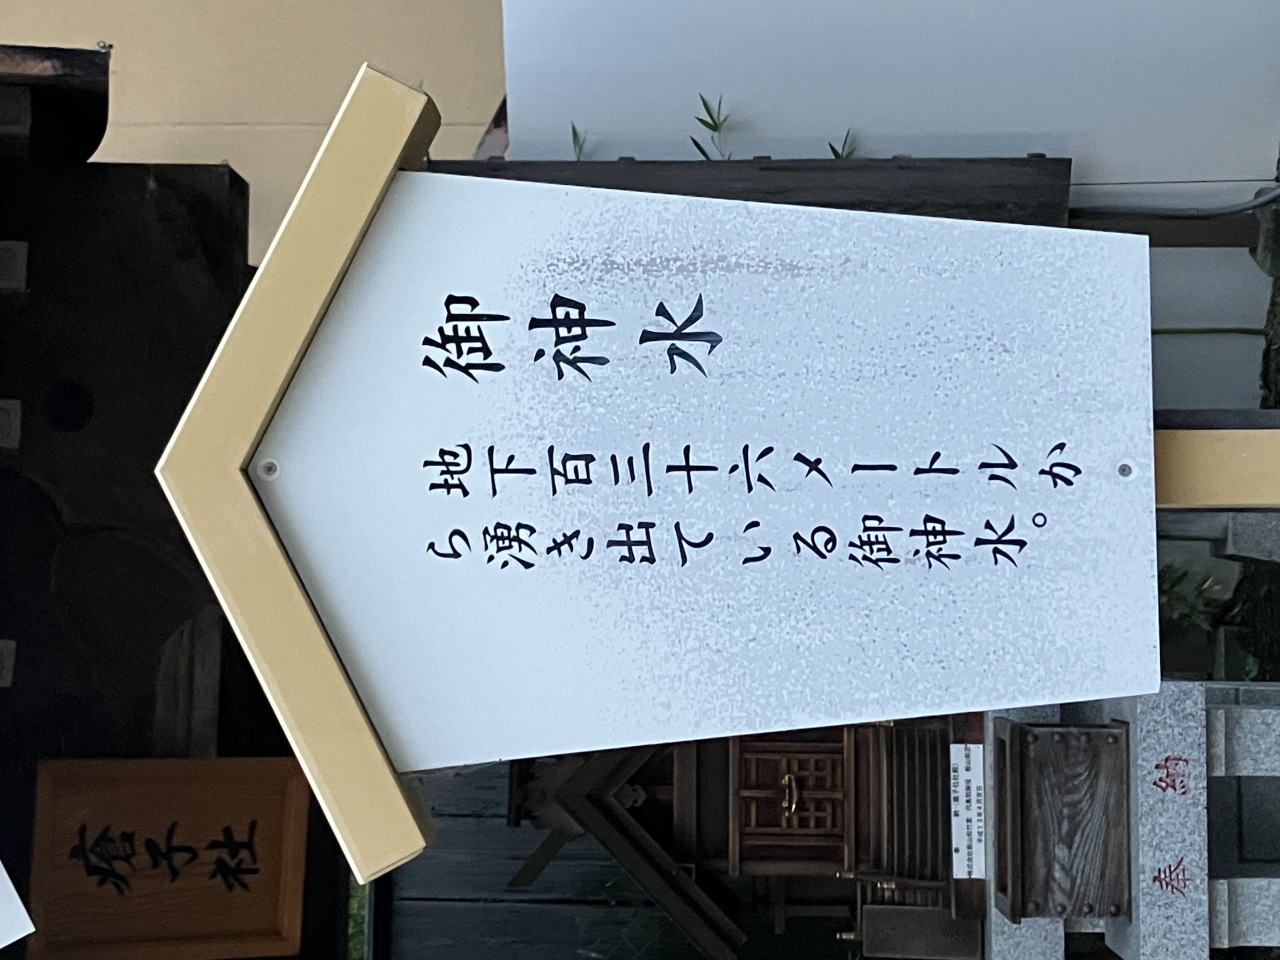 御神水
地下百三十六メートルか
ら湧き出ている御神水。
瘡子社
奉納